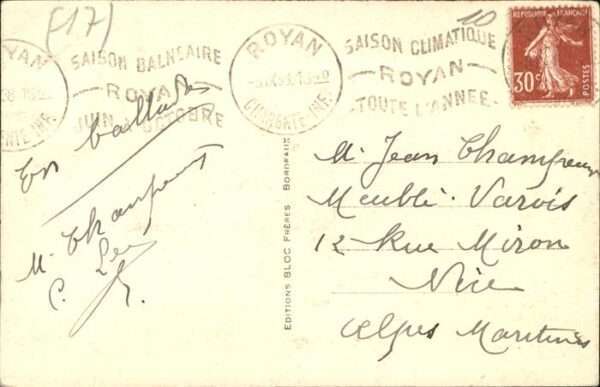 (17)
10
ROYAN
SAISON BALNEAIRE
ROYAN
JUIN A OCTOBRE
ROYAN
CHARENTE-INF.
SAISON CLIMATIQUE
ROYAN
TOUTE L'ANNEE
REPUBLIQUE FRANCAISE
30c
POSTES
En
M. Champ
C.
EDITIONS BLOC FRÈRES BORDEAUX
M. Jean Champreux
Meublé-Varois
12 Rue Miron
Nice
Alpes Maritimes